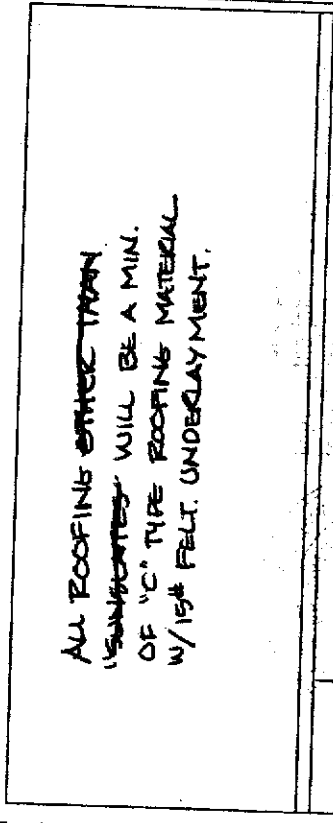 ALL ROOFING OTHER THAN
WILL BE A MIN.
OF "C" TYPE ROOFING MATERIAL
W/15# FELT. UNDERLAYMENT.